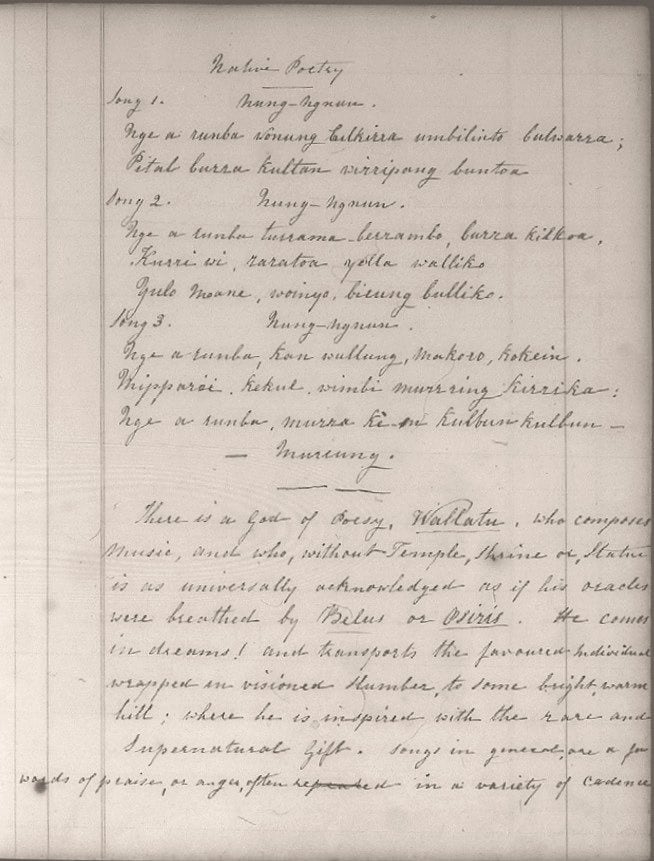 Native Poetry
Song 1. Nung-Ngnun.
Nge a runba wonung bulkirra umbilinto bulwarra;
Pital burra kultan wirripang buntoa
Song 2. Nung-Ngnun.
Nge a runba turrama-berrambo, burra kilkoa,
Kurri wi, raratoa yella walliko
Yulo Moane, woinyo, birung bulliko.
Song 3. Nung-Ngnun.
Nge a runba, kan wullung, Makoro, kokein.
Mipparai, kekul, wimbi murrring kirrika:
Nge a runba, murra ke-en kulbun kulbun –
– Murrung.
There is a God of Poesy, Wallatu, who composes
Music, and who, without Temple, Shrine or, Statue
is as universally acknowledged as if his oracles
were breathed by Belus or Osiris. He comes
in dreams! and transports the favoured Individual
wrapped in visioned slumber, to some bright, warm
hill; where he is inspired with the rare and
Supernatural Gift. Songs in general, are a few
words of praise, or anger, often repeated in a variety of cadence